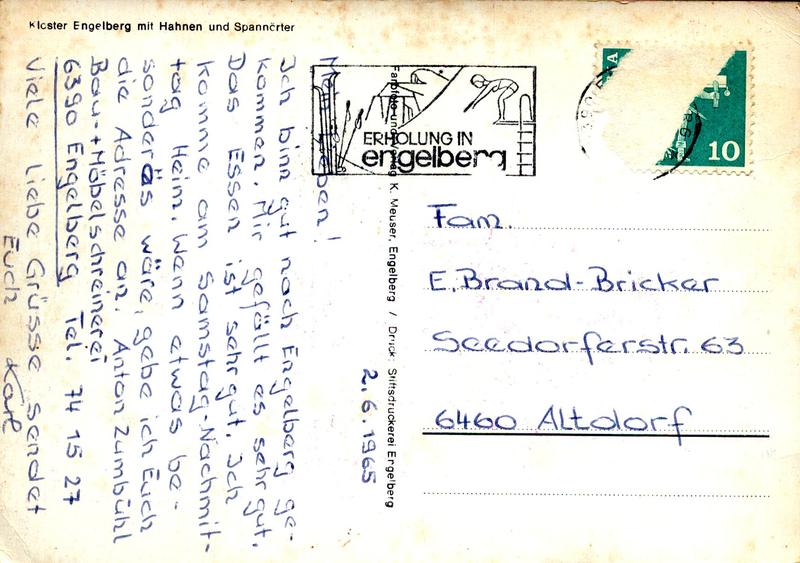 Kloster Engelberg mit Hahnen und Spannörter
ERHOLUNG IN
engelberg
10
Farbfoto und Verlag K. Meuser, Engelberg / Druck: Stiftsdruckerei Engelberg
2.6.1965
Meine Lieben!
Ich binn gut nach Engelberg ge-
kommen. Mir gefällt es sehr gut.
Das Essen ist sehr gut. Ich
komme am Samstag-Nachmit-
tag Heim. Wenn etwas be-
sonderäs wäre, gebe ich Euch
die Adresse an. Anton Zumbühl
Bau-+Möbelschreinerei
6390 Engelberg Tel. 74 15 27
Viele liebe Grüsse sendet
Euch Karl
Fam.
E. Brand-Bricker
Seedorferstr. 63
6460 Altdorf